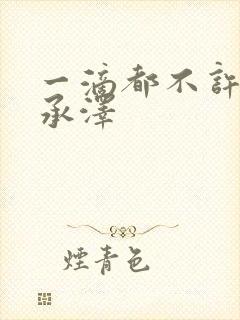 一滴都不許
承澤
煙青色